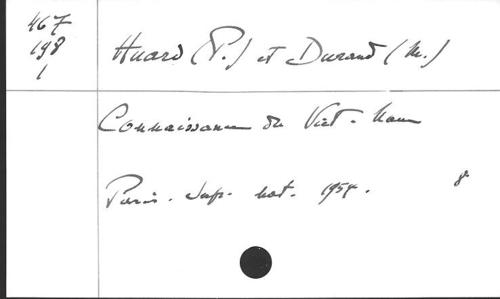 467
198
1
Huard (P.) et Durand (M.)
Connaissance du Viet-Nam
Paris. Imp. nat. 1954. 8°